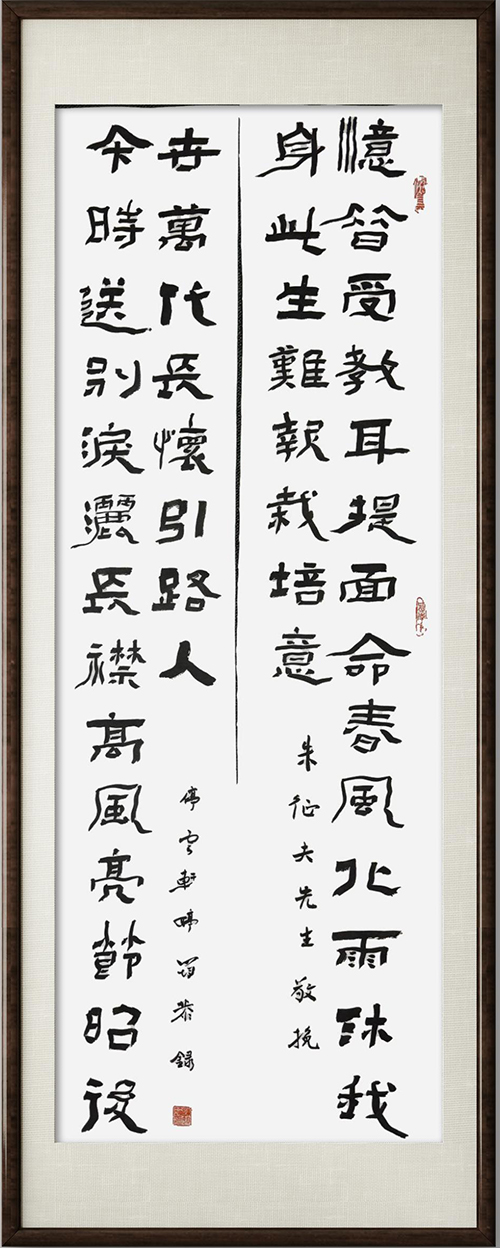 憶昔受教耳提面命春風化雨沐我
身此生難報栽培意
朱征夫先生敬挽
今時送別淚灑長襟高風亮節昭後
世萬代長懷引路人
停雲軒婷恭錄